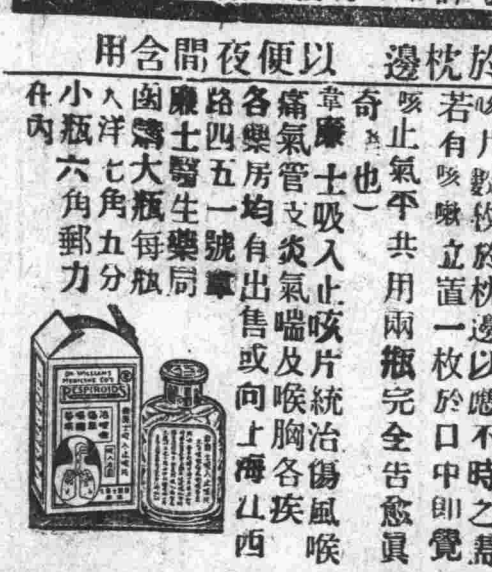 於枕邊 以便夜間含用
咳片數枚於枕邊以應不時之需
若有咳嗽立置一枚於口中即覺
咳止氣平共用兩瓶完全告愈眞
奇也）
韋廉士吸入止咳片統治傷風喉
痛氣管支炎氣喘及喉胸各疾
各藥房均有出售或向上海江西
路四五一號韋
廉士醫生藥局
函購大瓶每瓶
大洋七角五分
小瓶六角郵力
在內
DR. WILLIAMS
MEDICINE CO'S
RESPIROIDS